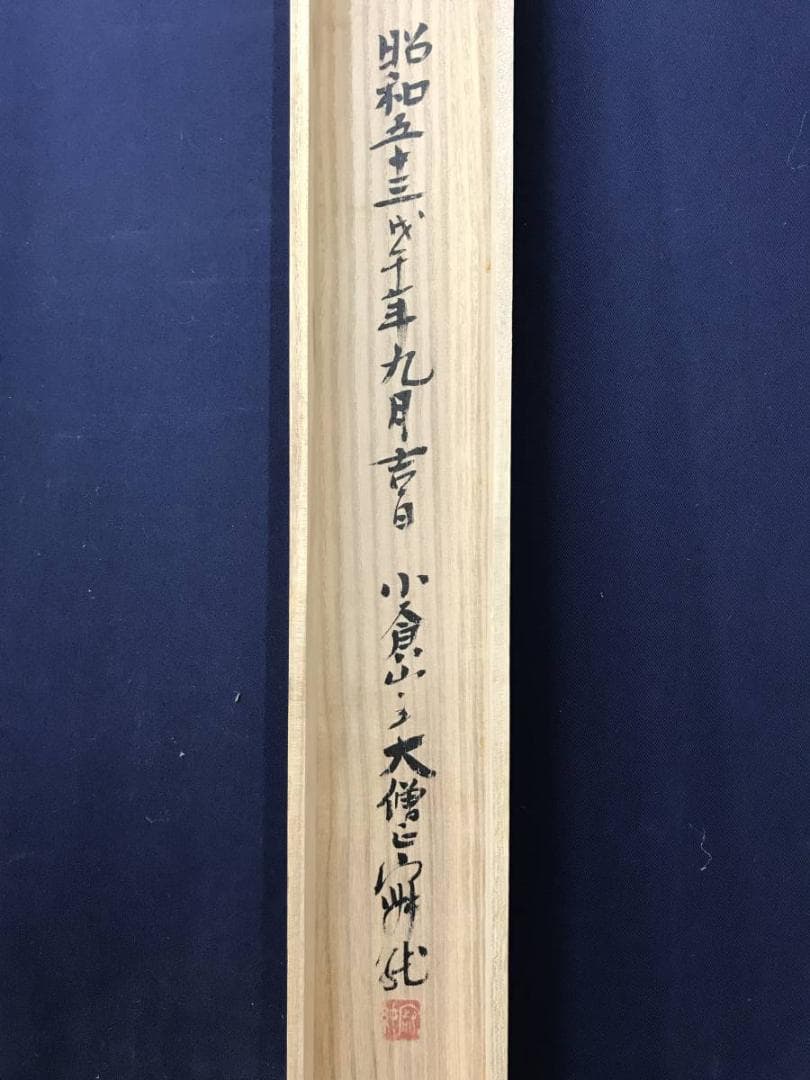 昭和五十三戊午年九月吉日 小倉山主大僧正寂